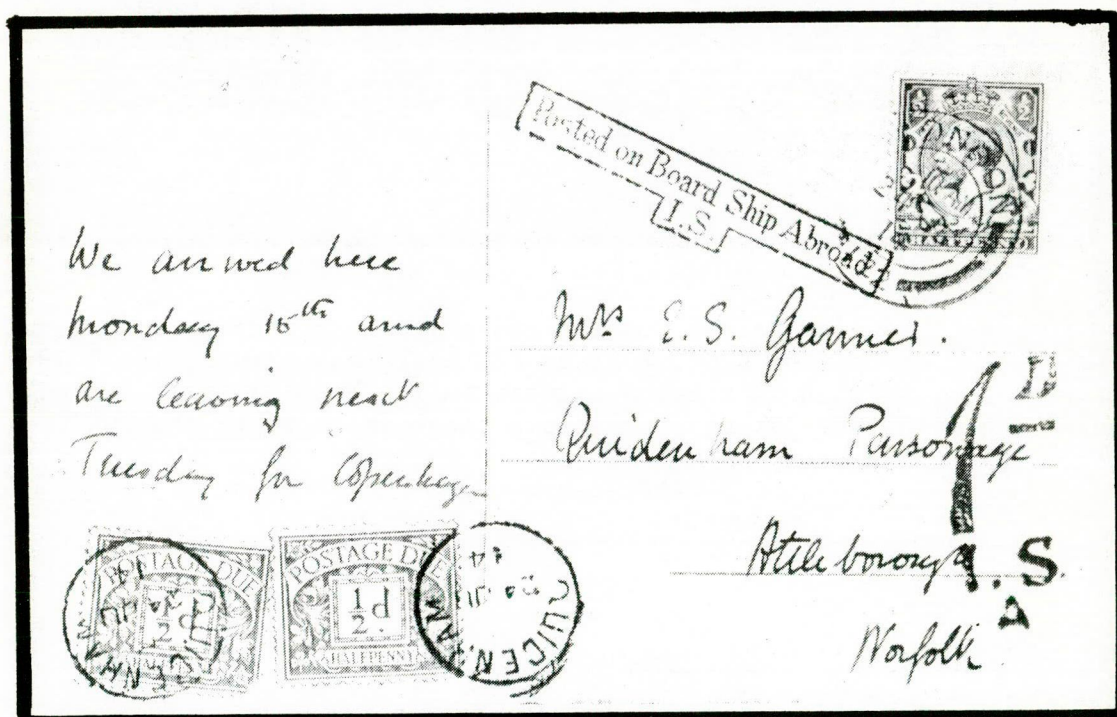 We arrived here
Monday 15th and
are leaving next
Tuesday for Copenhagen
Posted on Board Ship Abroad
I.S.
LONDON
½ ½
HALFPENNY
Mrs E. S. Garner.
Quidenham Parsonage
Attleborough
Norfolk
1D
I.S.
A
POSTAGE DUE
½d
QUIDENHAM
POSTAGE DUE
½d.
HALFPENNY
QUIDENHAM
24